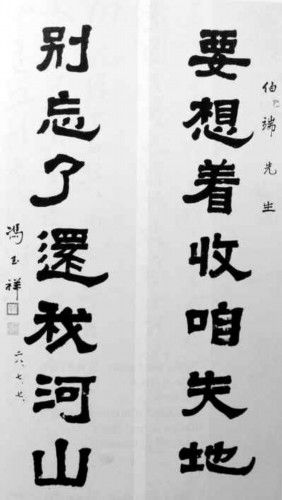 伯端先生
要想着收咱失地
别忘了還我河山
馮玉祥
二八、七、七、